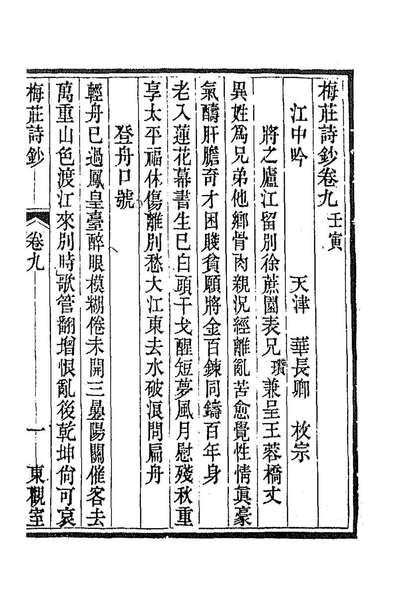 梅莊詩鈔卷九 壬寅
江中吟
天津 華長卿 枚宗
將之廬江留別徐蔗園表兄瓚兼呈王蓉橋丈
異姓爲兄弟他鄉骨肉親況經離亂苦愈覺性情眞豪
氣疇肝膽奇才困賤貧願將金百鍊同鑄百年身
老入蓮花幕書生已白頭干戈醒短夢風月慰殘秋重
享太平福休傷離別愁大江東去水破浪問扁舟
登舟口號
輕舟已過鳳皇臺醉眼模糊倦未開三疊陽關催客去
萬重山色渡江來別時歌管翻增恨亂後乾坤尙可哀
梅莊詩鈔
卷九
一
東觀室